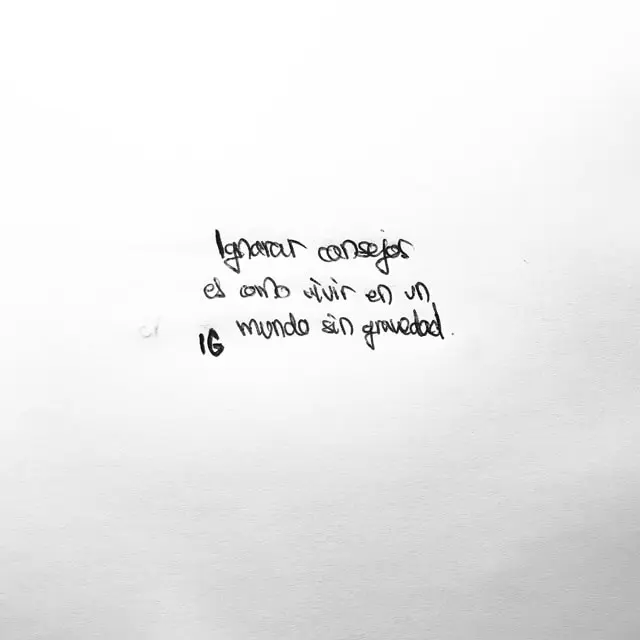 Ignorar consejos
es como vivir en un
mundo sin gravedad.
IG